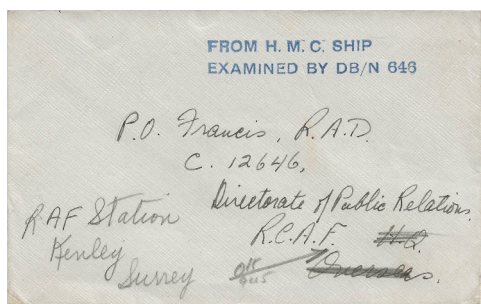 FROM H. M. C. SHIP
EXAMINED BY DB/N 646
P.O. Francis, R.A.D.
C. 12646,
Directorate of Public Relations,
R.C.A.F. H.Q.
Overseas.
RAF Station
Kenley
Surrey